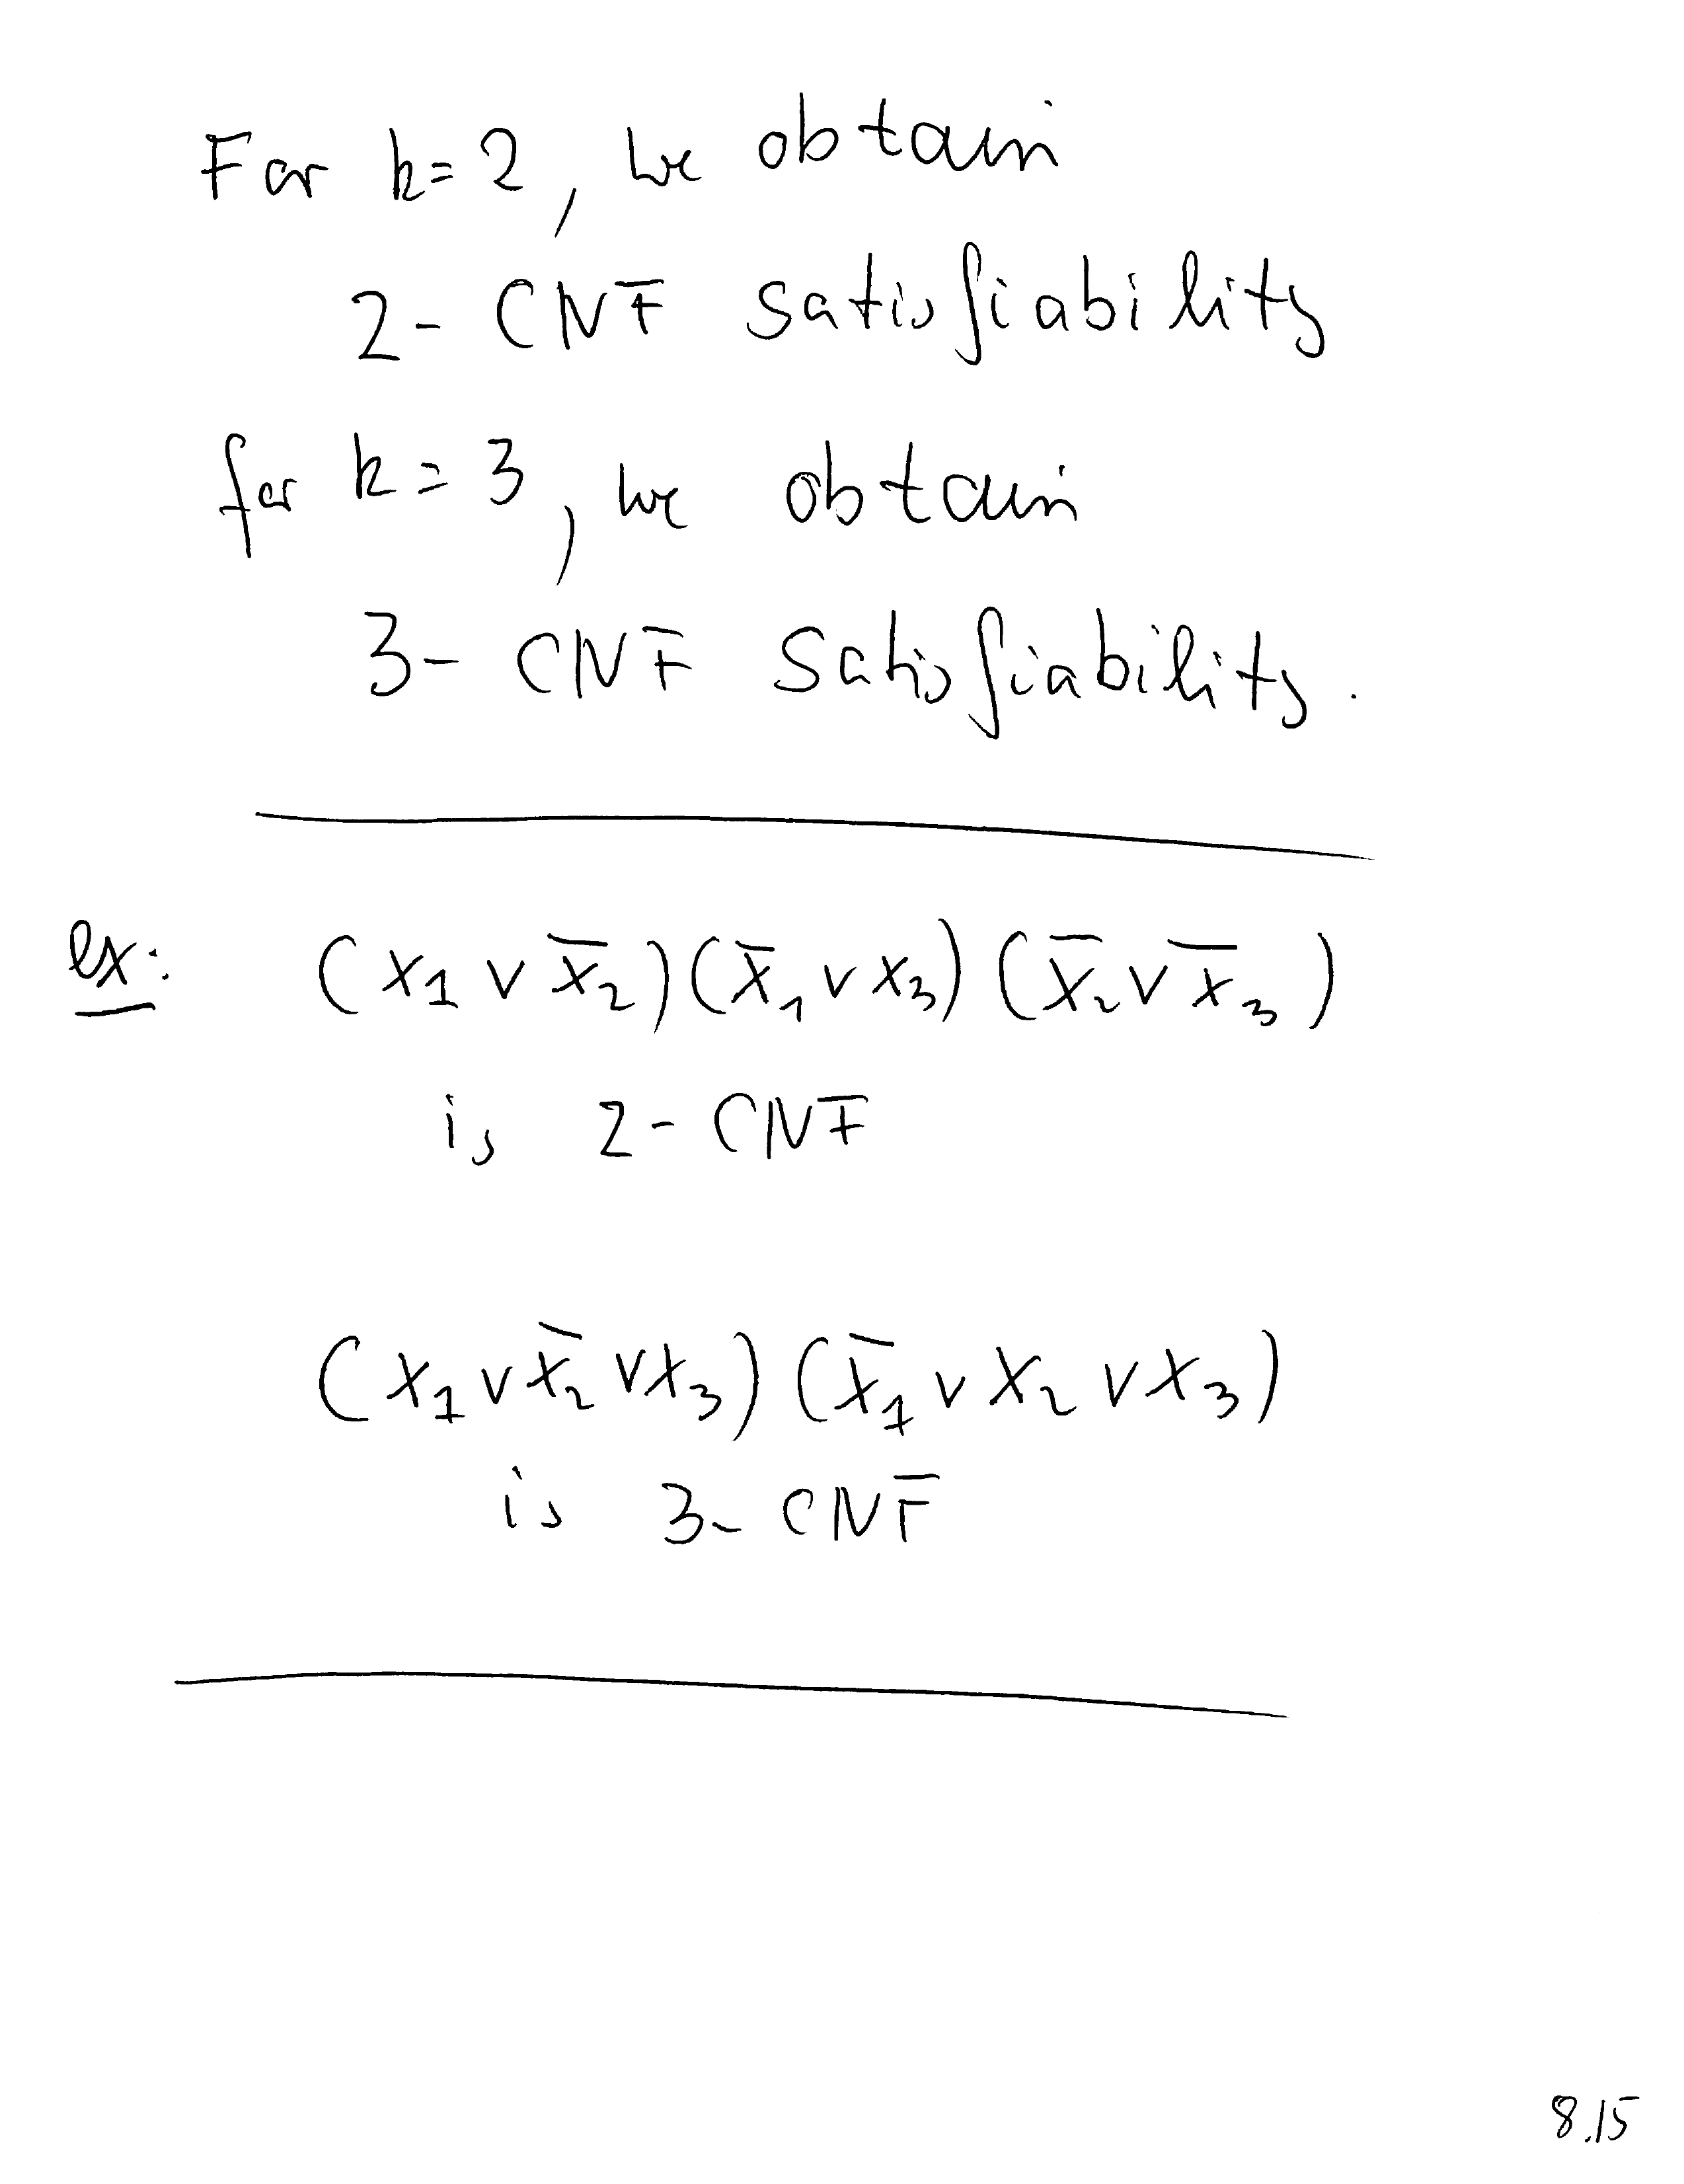 For k=2, we obtain
2- CNF satisfiability
for k=3, we obtain
3- CNF satisfiability.
ex: (x₁ ∨ x̅₂)(x̅₁ ∨ x₃)(x̅₂ ∨ x̅₃)
is 2- CNF
(x₁ ∨ x̅₂ ∨ x₃)(x̅₁ ∨ x₂ ∨ x₃)
is 3- CNF
8.15